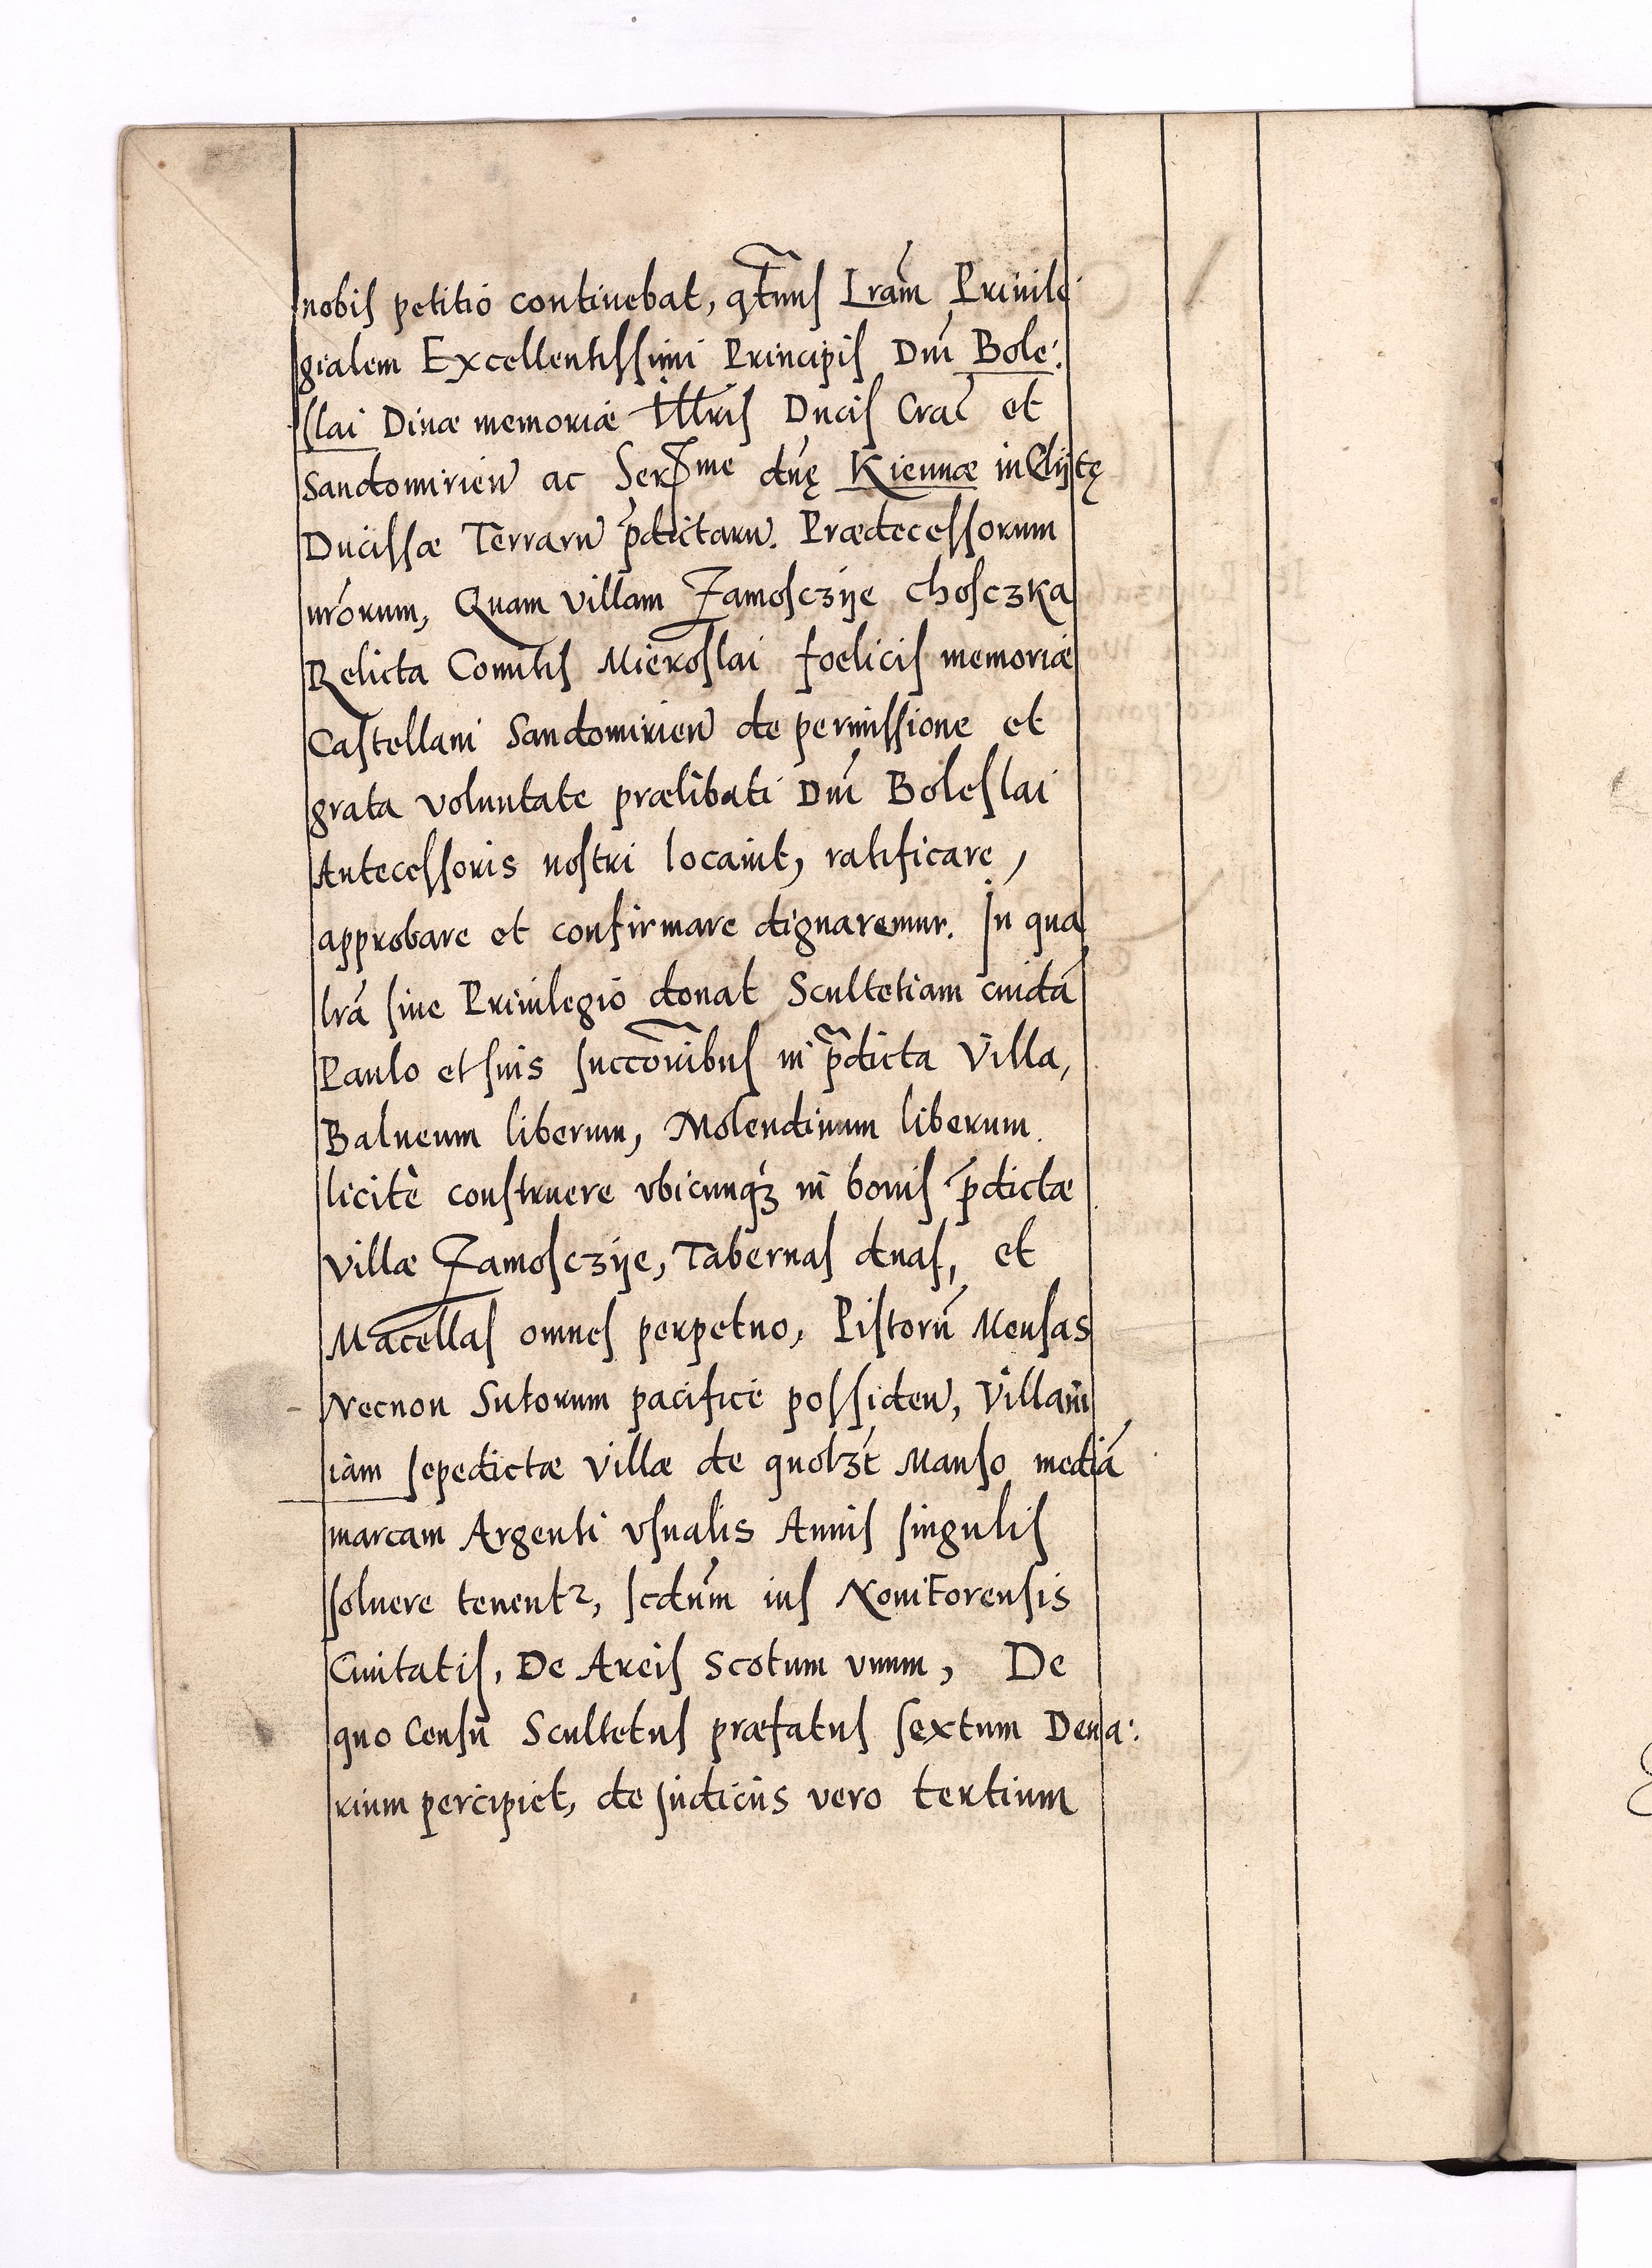 nobis petitio continebat, qtũus Lram̃ Priuile
gialem Excellentissimi Principis Dnĩ Bole:
slai Diuæ memoriæ Illtris Ducis Crac̃ et
Sandomirien̄ ac Sermẽ dnę̃ Kiennæ inClijtę
Ducissæ Terraru̅ p̃dictaru̅. Prædecessorum
nr̃orum, Quam villam Zamosczije Chosczka
Relicta Comitis Mieroslai foelicis memoriæ
Castellani Sandomirien̄ de permissione et
grata voluntate prælibati Dnĩ Boleslai
Antecessoris nostri locauit, ratificare,
approbare et confirmare dignaremur. In qua
lrã siue Priuilegio donat Scultetiam cuidã
Paulo et suis succoribus̃ in p̃dicta Villa,
Balneum liberum, Molendinum liberum.
licitè construere vbicunqꝫ in bonis p̃dictæ
villæ Zamosczije, Tabernas duas, et
Macellas omnes perpetuo, Pistorũ Mensas
Necnon Sutorum pacificè possiden̄, Villani
iam sepedictæ villæ de quolꝫt Manso mediã
marcam Argenti vsualis Annis singulis
soluere tenentꝛ, scdũm ius NouiForensis
Ciuitatis, De Areis Scotum vnum, De
quo Censu Scultetus præfatus sextum Dena:
rium percipiet, de Judicijs vero tertium